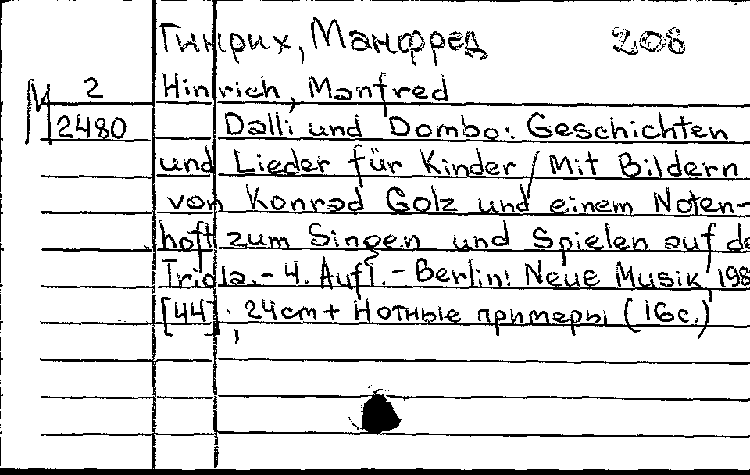 Гинрих, Манфред 208
Hinrich, Manfred
М 2
2480
Dalli und Dombo: Geschichten
und Lieder für Kinder / Mit Bildern
von Konrad Golz und einem Noten-
hoft zum Singen und Spielen auf de
Triola. - 4. Aufl. - Berlin: Neue Musik, 198
[44]; 24cm + Нотные примеры (16с.)